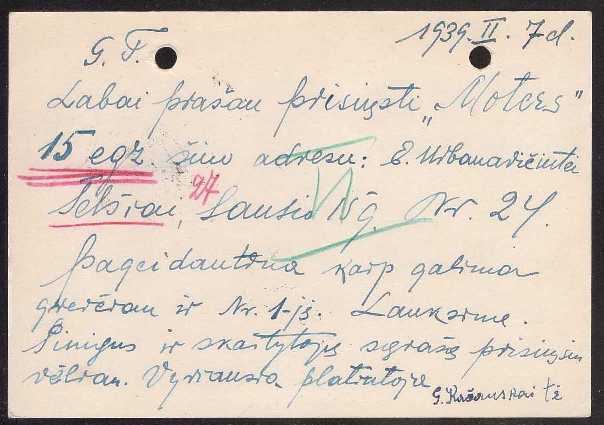 1939.II.7d.
G. T.
Labai prašau prisiųsti „Moters"
15 egz. šiuo adresu: E. Urbanavičiūtei
27
Telšiai, Sausio 15 g. Nr. 24.
Pageidautina kaip galima
greičiau ir Nr. 1-js. Lauksime.
Pinigus ir skaitytojų sąrašą prisiųsiu
vėliau. Vyriausia platintoja
G. Kašauskaitė